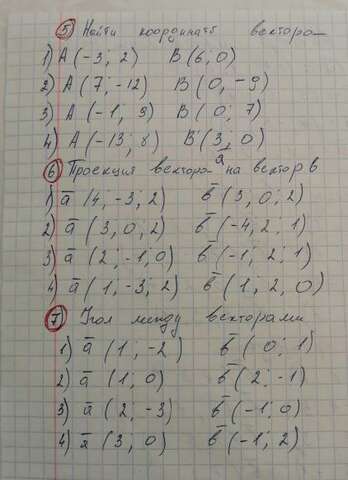 5) Найти координаты вектора
1) A (-3; 2) B (6; 0)
2) A (7; -12) B (0, -9)
3) A (-1, 9) B (0; 7)
4) A (-13; 8) B (3; 0)
6) Проекция вектора a̅ на вектор b
1) a̅ (4, -3; 2) b̅ (3, 0; 2)
2) a̅ (3, 0, 2) b̅ (-4, 2; 1)
3) a̅ (2; -1, 0) b̅ (-1; 2; 1)
4) a̅ (1; -3; 2) b̅ (1; 2, 0)
7) Угол между векторами
1) a̅ (1; -2) b̅ (0; 1)
2) a̅ (1; 0) b̅ (2; -1)
3) a̅ (2; -3) b̅ (-1; 0)
4) a̅ (3; 0) b̅ (-1; 2)